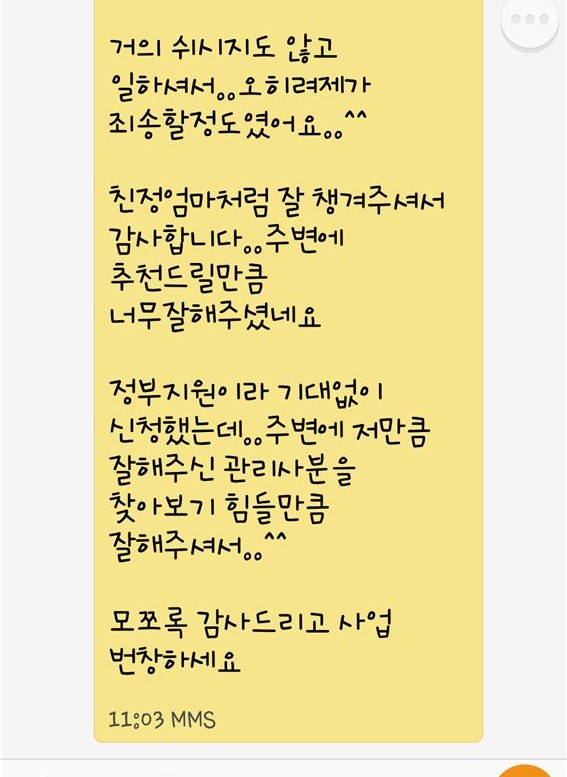 거의 쉬시지도 않고
일하셔서。。오히려제가
죄송할정도였어요。。^^
친정엄마처럼 잘 챙겨주셔서
감사합니다。。주변에
추천드릴만큼
너무잘해주셨네요
정부지원이라 기대없이
신청했는데。。주변에 저만큼
잘해주신 관리사분을
찾아보기 힘들만큼
잘해주셔서。。^^
모쪼록 감사드리고 사업
번창하세요
11:03 MMS